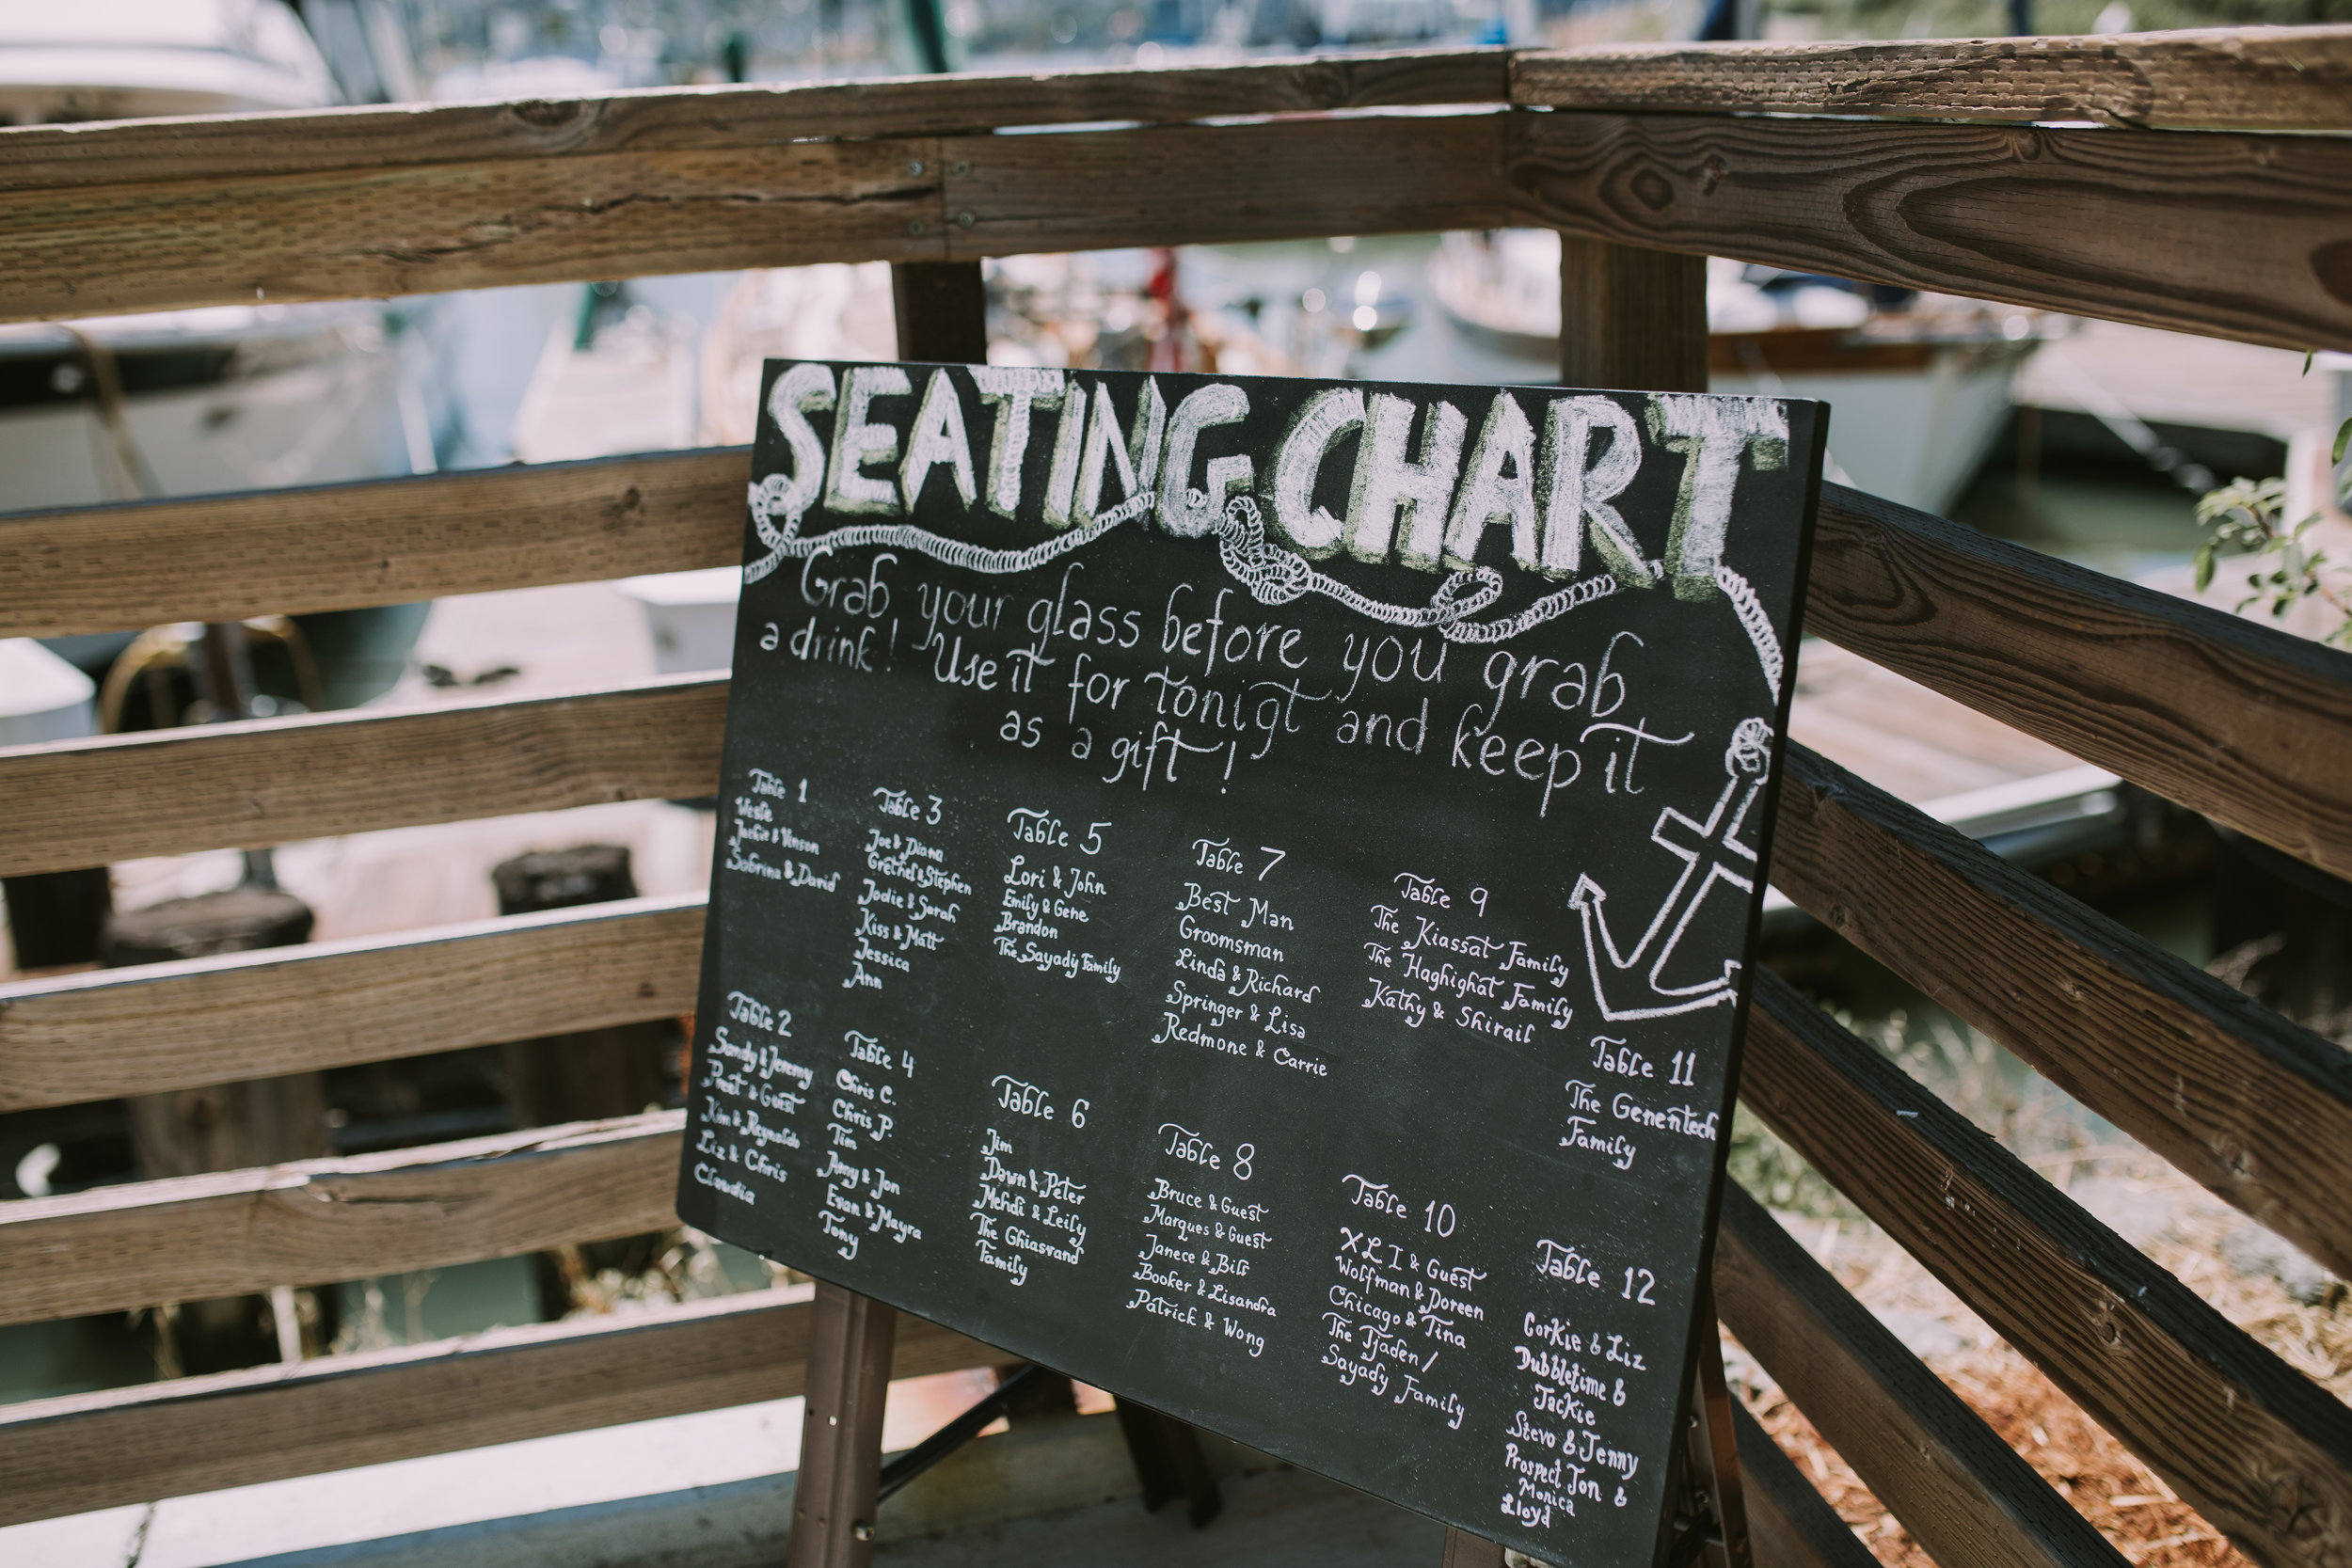 SEATING CHART
Grab your glass before you grab
a drink! Use it for tonigt and keep it
as a gift!
Table 1
Jackie & Vinson
Sabrina & David
Table 2
Sandy & Jeremy
& Guest
Kim & Reynaldo
Liz & Chris
Claudia
Table 3
Joe & Diana
Grethel & Stephen
Jodie & Sarah
Kiss & Matt
Jessica
Ann
Table 4
Chris C.
Chris P.
Tim
Amy & Jon
Evan & Mayra
Tony
Table 5
Lori & John
Emily & Gene
Brandon
The Sayady Family
Table 6
Jim
Dawn & Peter
Mehdi & Leily
The Ghiasvand
Family
Table 7
Best Man
Groomsman
Linda & Richard
Springer & Lisa
Redmone & Carrie
Table 8
Bruce & Guest
Marques & Guest
Janece & Bill
Booker & Lisandra
Patrick & Wong
Table 9
The Kiassat Family
The Haghighat Family
Kathy & Shirail
Table 10
XLI & Guest
Wolfman & Doreen
Chicago & Tina
The Tjaden/
Sayady Family
Table 11
The Genentech
Family
Table 12
Corkie & Liz
Dubbletime &
Jackie
Stevo & Jenny
Prospect Jon &
Monica
Lloyd